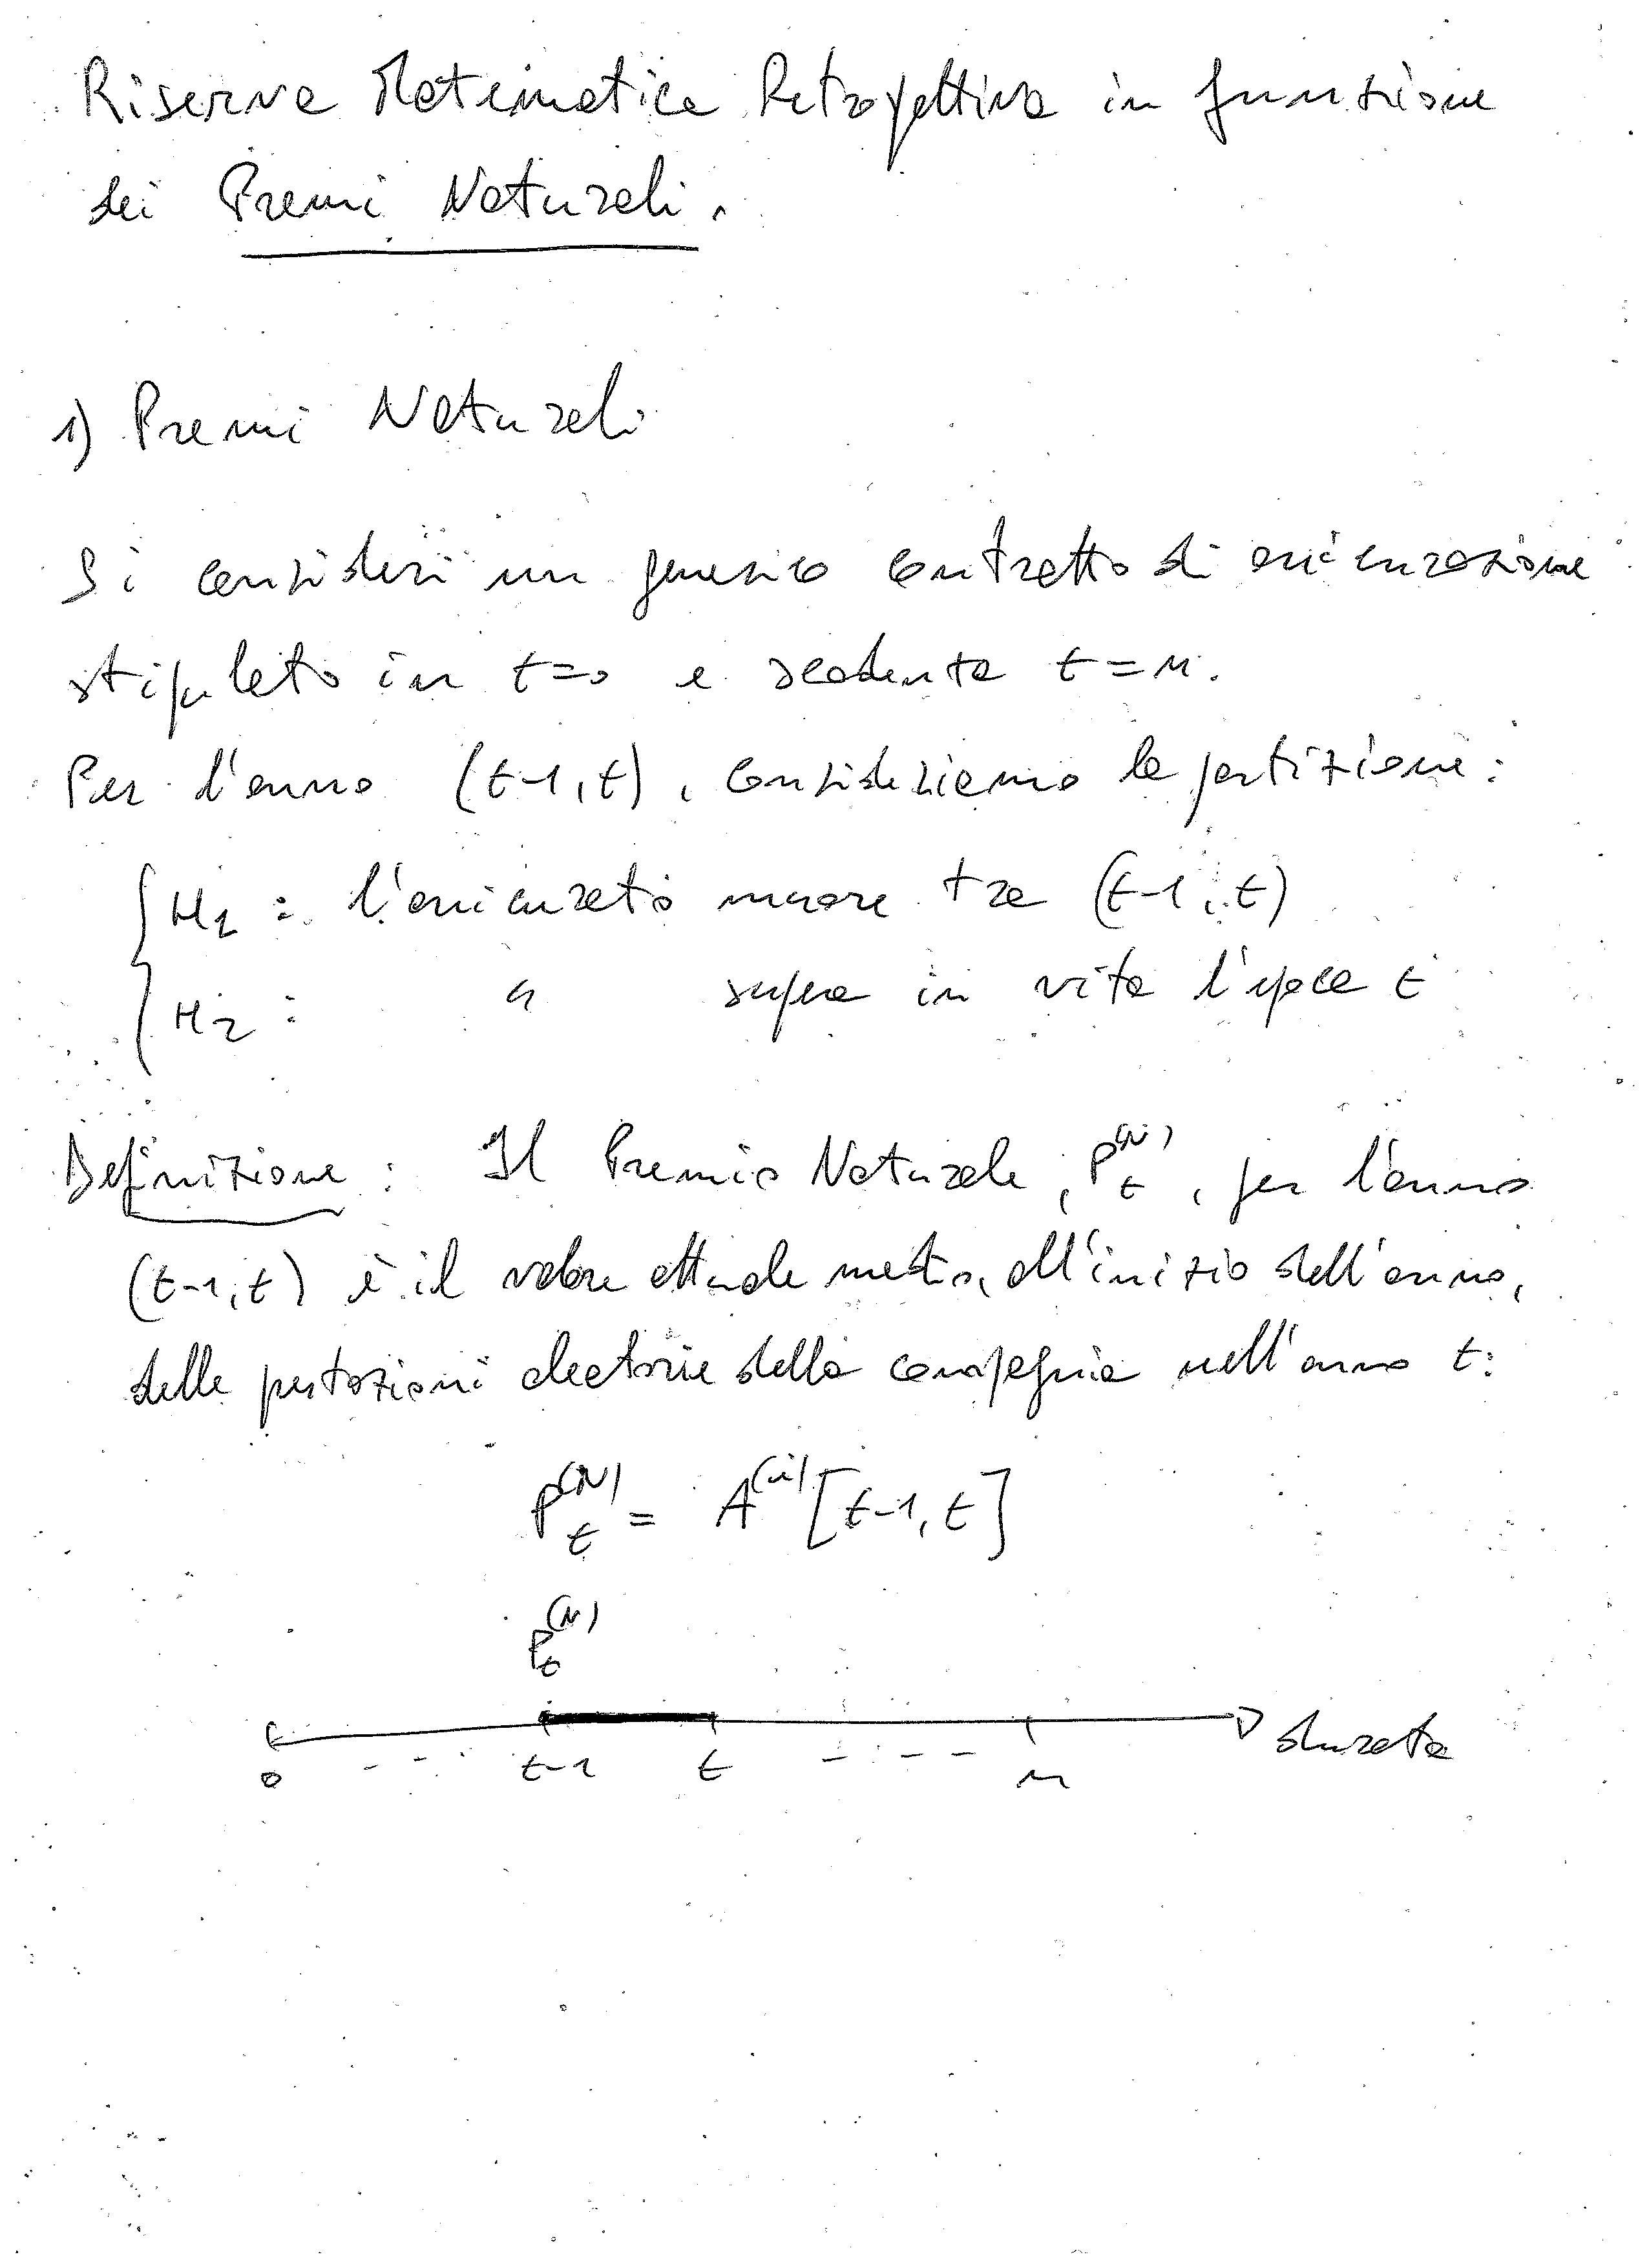 Riserva Matematica Retrospettiva in funzione
dei Premi Naturali.
1) Premi Naturali
Si consideri un generico contratto di assicurazione
stipulato in t=0 e scadenza t=n.
Per l'anno (t-1, t), consideriamo la partizione:
H1 : l'assicurato muore tra (t-1, t)
H2 : " supera in vita l'epoca t
Definizione : Il Premio Naturale, P_t^(N), per l'anno
(t-1, t) è il valore attuale medio, all'inizio dell'anno,
delle prestazioni aleatorie della compagnia nell'anno t:
P_t^(N) = A^(u) [t-1, t]
P_t^(N)
0 - - t-1 t - - - n durata